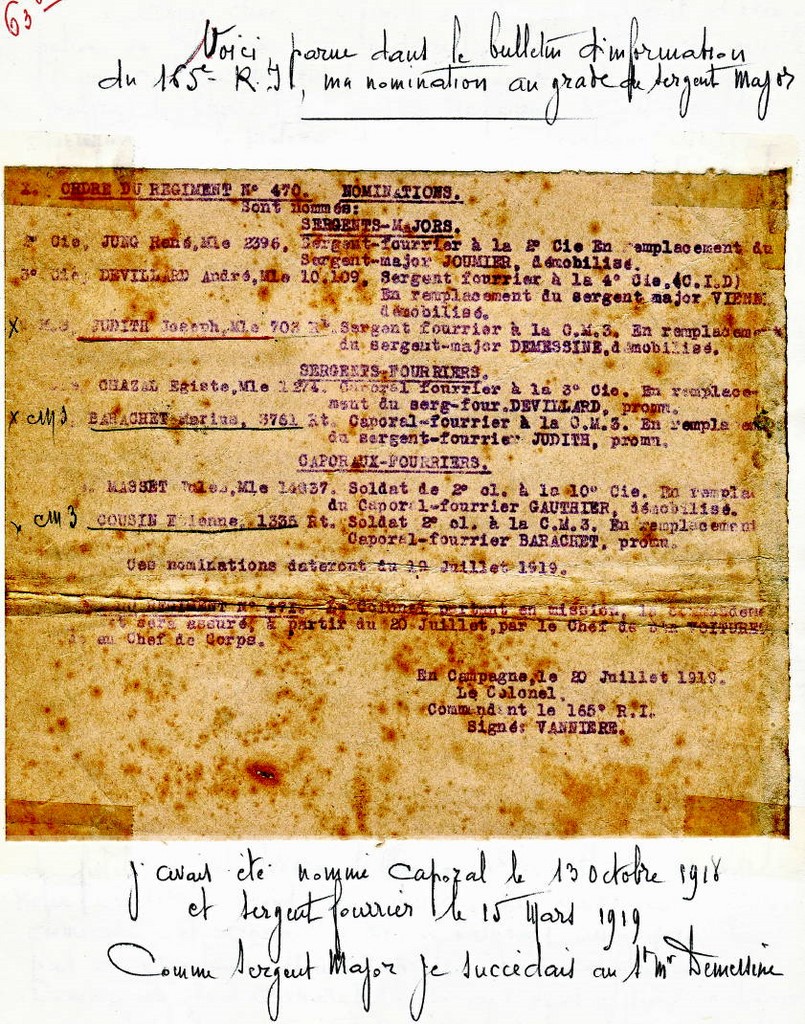 63
Voici, parue dans le bulletin d'information
du 165e R.I, ma nomination au grade de sergent Major
X. ORDRE DU REGIMENT N° 470. NOMINATIONS.
Sont nommés:
SERGENTS-MAJORS.
2° Cie, JUNG René, Mle 2396. Sergent-fourrier à la 2° Cie En remplacement du
Sergent-major JOUMIER, démobilisé.
3° Cie, DEVILLARD André, Mle 10.109. Sergent fourrier à la 4° Cie. (C.I.D)
En remplacement du sergent major VIENN
démobilisé.
X JUDITH Joseph, Mle 703 Rt. Sergent fourrier à la C.M.3. En remplacement
du sergent-major DEMESSINE, démobilisé.
SERGENTS-FOURRIERS.
CHAZAL Egiste, Mle 1274. Caporal fourrier à la 3° Cie. En remplace-
ment du serg-four. DEVILLARD, promu.
x CM3 BARACHET Marius, 3761 Rt. Caporal-fourrier à la C.M.3. En remplacement
du sergent-fourrier JUDITH, promu.
CAPORAUX-FOURRIERS.
MASSET Jules, Mle 14937. Soldat de 2° cl. à la 10° Cie. En rempla
du Caporal-fourrier GAUTHIER, démobilisé.
x CM3 COUSIN Etienne, 1335 Rt. Soldat 2° cl. à la C.M.3. En remplacement
Caporal-fourrier BARACHET, promu.
Ces nominations dateront du 19 Juillet 1919.
REGIMENT N° 471. Le Colonel partant en mission, le commandement
et sera assuré, à partir du 20 Juillet, par le Chef de VOITURE
au Chef de Corps.
En Campagne, le 20 Juillet 1919.
Le Colonel,
Commandant le 165° R.I.
Signé: VANNIERE.
j'avais été nommé caporal le 13 octobre 1918
et sergent fourrier le 15 Mars 1919
Comme Sergent Major je succédais au St Mr Demessine